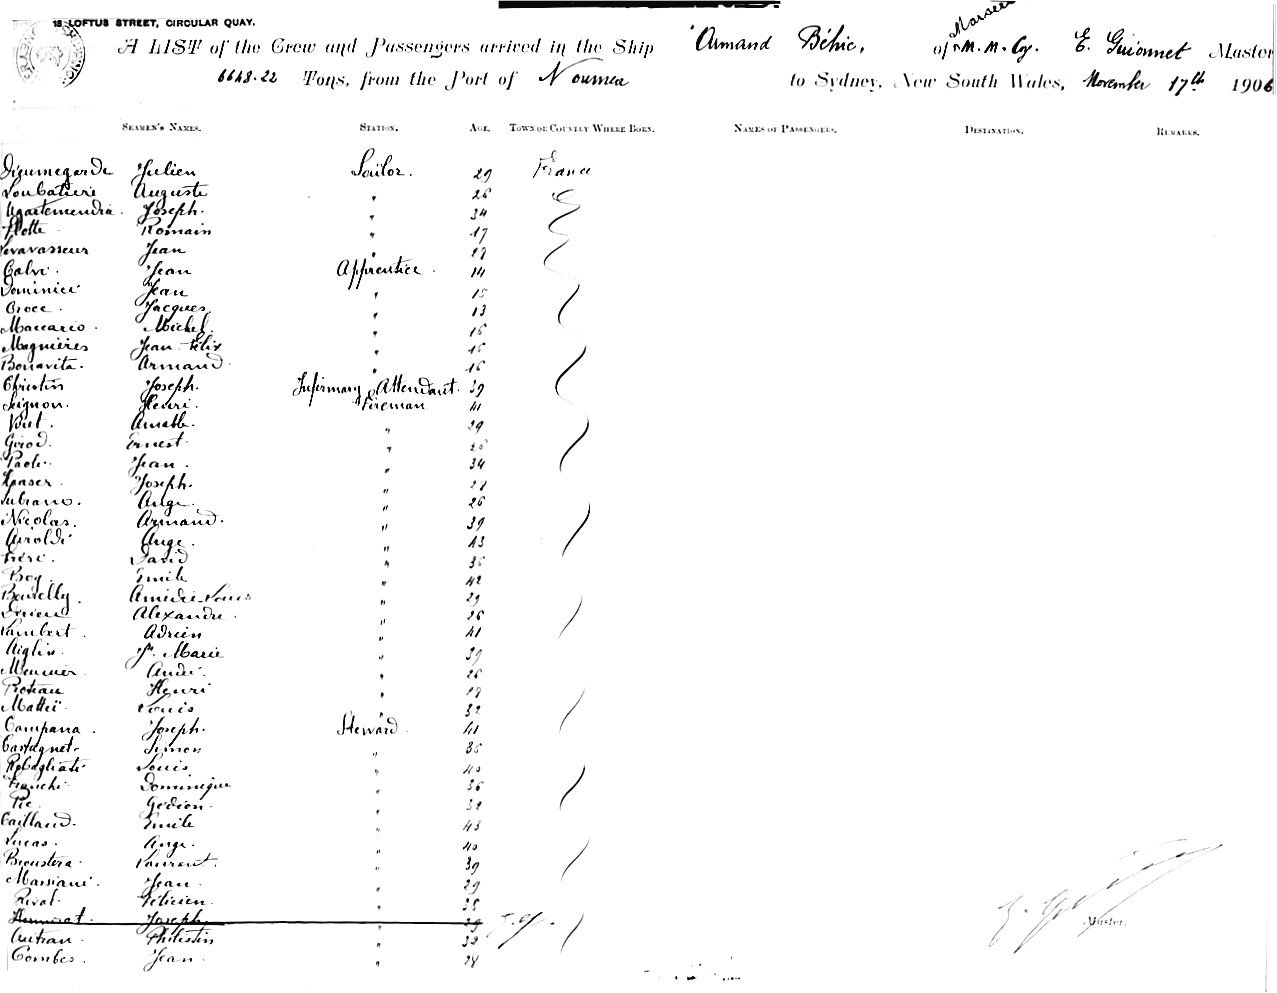 18 LOFTUS STREET, CIRCULAR QUAY.
A LIST of the Crew and Passengers arrived in the Ship Armand Béhic, of Marseille M. M. Cy. E. Guionnet Master
6648.22 Tons, from the Port of Noumea to Sydney, New South Wales, November 17th 1906
SEAMEN'S NAMES. STATION. AGE. TOWN OR COUNTRY WHERE BORN. NAMES OF PASSENGERS. DESTINATION. REMARKS.
Dieumegarde Julien Sailor. 29 France
Loubatière Auguste " 26
Agartemendia. Joseph. " 34
Flotte Romain " 17
Levavasseur Jean "
Calvi. Jean Apprentice. 14
Dominici Jean " 15
Croce. Jacques " 13
Maccario. Michel. " 16
Magnières Jean-Félix " 16
Bonavita. Armand. " 16
Christin Joseph. Infirmary Attendant. 39
Seignon. Henri. Fireman 41
But. Amable. " 29
Girod. Ernest "
Paoli. Jean. " 34
Joseph. "
Lubrano. Ange. " 26
Nicolas. Armand. " 39
Airoldi Ange. " 43
David " 36
Boy. Emile " 42
Amédée-Louis " 29
Alexandre. " 26
Lambert. Adrien " 41
Aiglin. Jn. Marie " 39
Meunier. André. " 26
Proteau Henri "
Mattei. Louis " 32
Campana. Joseph. Steward. 41
Castagnet. Simon " 36
Rebagliati Louis " 40
Franchi Dominique " 36
Pic. Gédéon. " 32
Cailland. Emile " 43
Lucas. Ange. " 40
Broustera. Laurent. " 39
Massiani. Jean. " 29
Rival. Félicien. " 38
Joseph 39
Autran. Philistin " 32
Combes. Jean. " 28
Master.